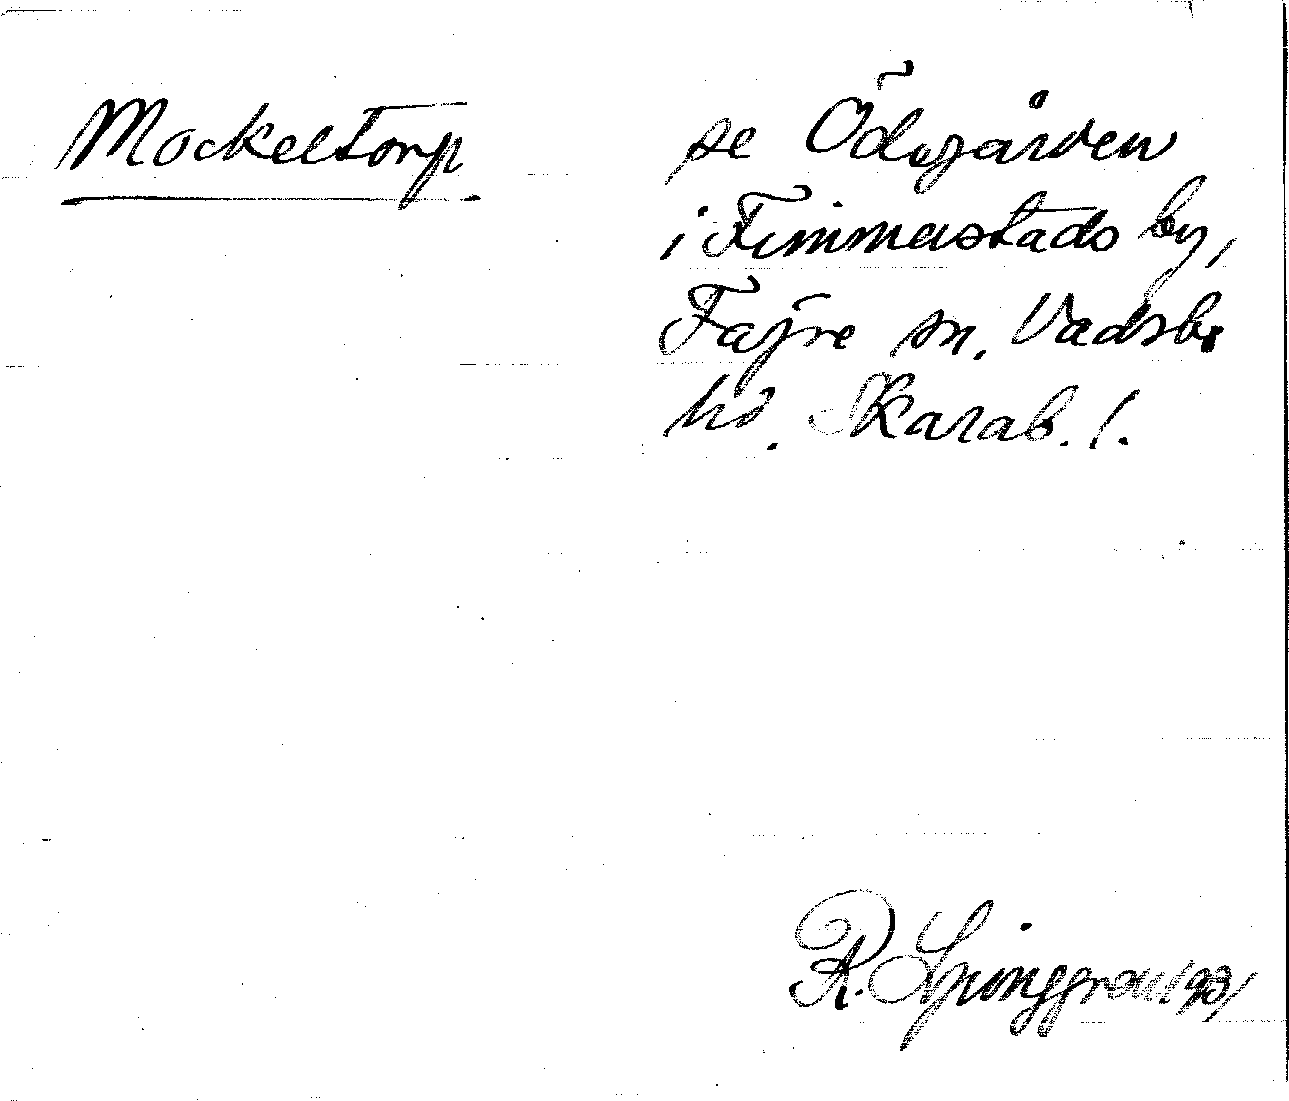 Mockeltorp
se Ödegården
i Fimmerstads by,
Fägre sn. Vadsbo
hd. Skarab. l.
R. Ljunggren 1931